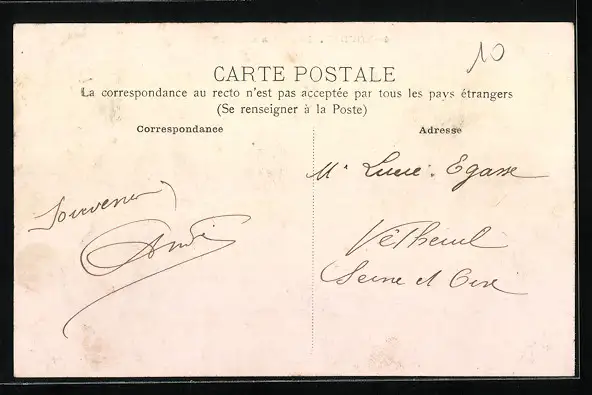 10
CARTE POSTALE
La correspondance au recto n'est pas acceptée par tous les pays étrangers
(Se renseigner à la Poste)
Correspondance
Adresse
Souvenir
André
Lucie Egasse
Vétheuil
Seine et Oise